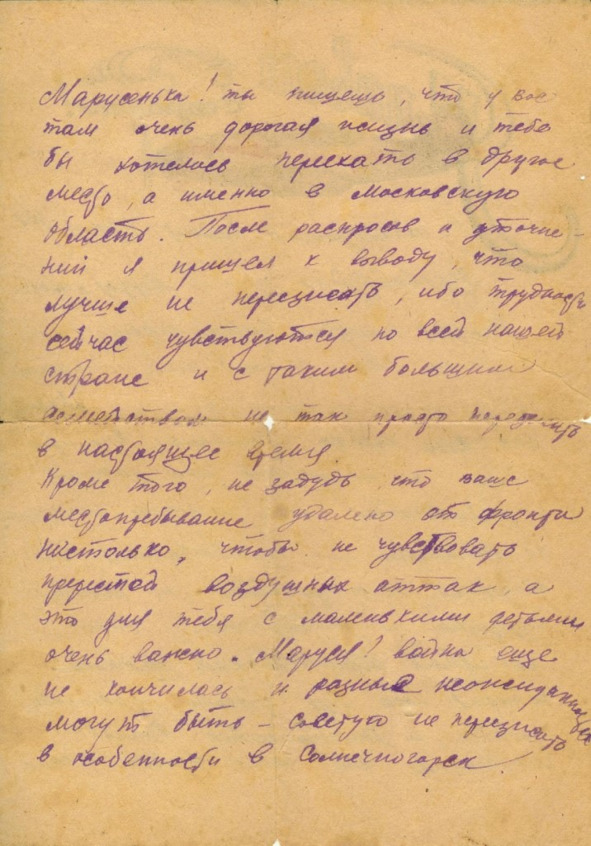 Марусенька! ты пишешь, что у вас
там очень дорогая жизнь и тебе
бы хотелось переехать в другое
место, а именно в Московскую
область. После распросов и уточне-
ний я пришел к выводу, что
лучше не переезжать, ибо трудности
сейчас чувствуются по всей нашей
стране и с таким большим
семейством не так просто переехать
в настоящее время.
Кроме того, не забудь, что ваше
местопребывание удалено от фронта
настолько, чтобы не чувствовать
прелестей воздушных аттак, а
это для тебя с маленькими детьми
очень важно. Маруся! война еще
не кончилась и разные неожиданности
могут быть – советую не переезжать
в особенности в Солнечногорск